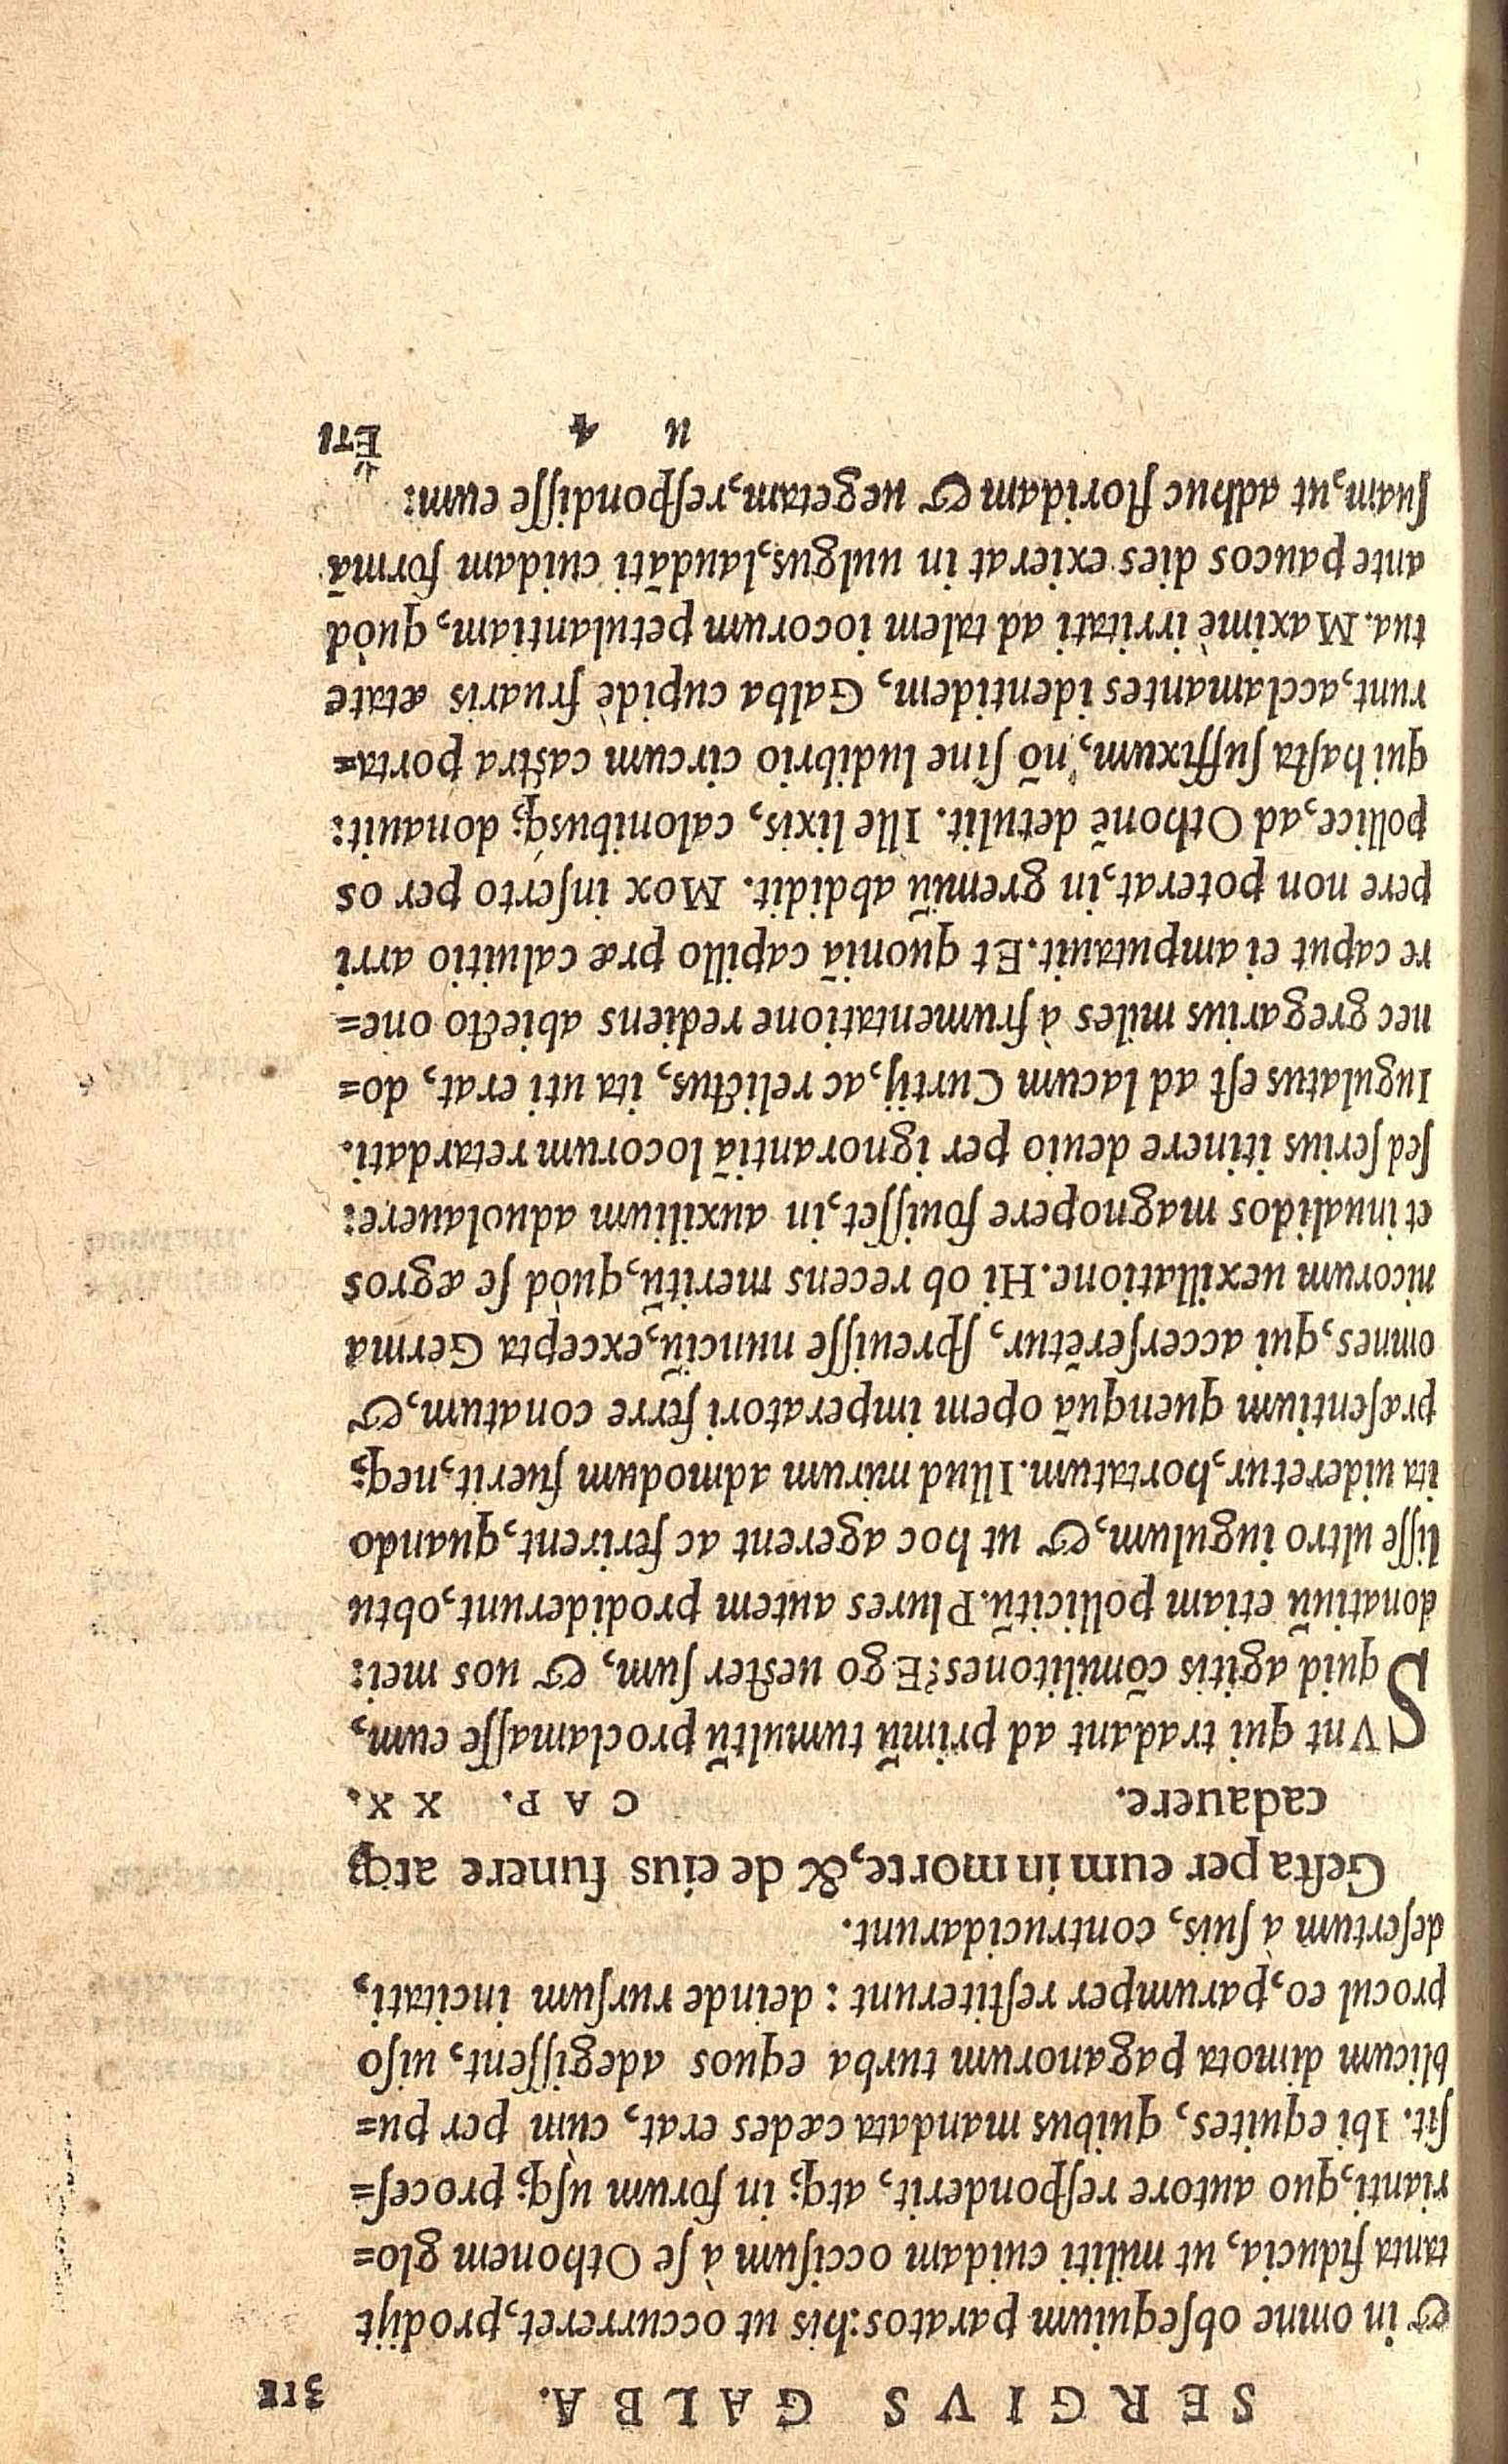 SERGIVS GALBA. 311
& in omne obsequium paratos: his ut occurreret, prodijt
tanta fiducia, ut militi cuidam occisum à se Othonem glo=
rianti, quo autore responderit, atq; in forum usq; proces=
sit. Ibi equites, quibus mandata cædes erat, cum per pu=
blicum dimota paganorum turba equos adegissent, uiso
procul eo, parumper restiterunt: deinde rursum incitati,
desertum à suis, contrucidarunt.
Gesta per eum in morte, & de eius funere atq;
cadauere. CAP. XX.
SVnt qui tradant ad primū tumultū proclamasse eum,
quid agitis cōmilitones? Ego uester sum, & uos mei:
donatiuū etiam pollicitū. Plures autem prodiderunt, obtu
lisse ultro iugulum, & ut hoc agerent ac ferirent, quando
ita uideretur, hortatum. Illud mirum admodum fuerit, neq;
præsentium quenquā opem imperatori ferre conatum, &
omnes, qui accerserētur, spreuisse nunciū, excepta Germa
nicorum uexillatione. Hi ob recens meritū, quòd se ægros
et inualidos magnopere fouisset, in auxilium aduolauere:
sed serius itinere deuio per ignorantiā locorum retardati.
Iugulatus est ad lacum Curtij, ac relictus, ita uti erat, do=
nec gregarius miles à frumentatione rediens abiecto one=
re caput ei amputauit. Et quoniā capillo præ caluitio arri
pere non poterat, in gremiū abdidit. Mox inserto per os
pollice, ad Othonē detulit. Ille lixis, calonibusq; donauit:
qui hasta suffixum, nō sine ludibrio circum castra porta=
runt, acclamantes identidem, Galba cupidè fruaris ætate
tua. Maximè irritati ad talem iocorum petulantiam, quòd
ante paucos dies exierat in uulgus, laudāti cuidam formā
suam, ut adhuc floridam & uegetam, respondisse eum:
u 4 ἔτι